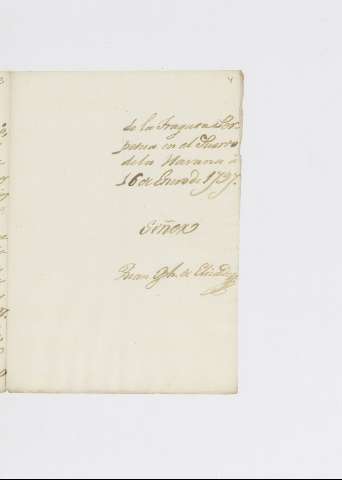 de la Fragata Ser-
pena en el Puerto
de la Havana á
16 de Enero de 1797.
Señor
Juan Jph. de Elizalde